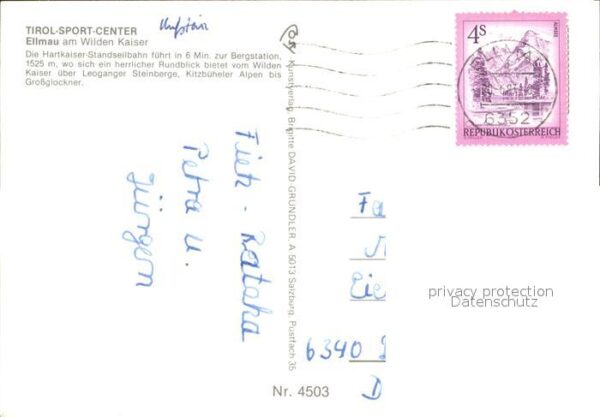 TIROL-SPORT-CENTER
Ellmau am Wilden Kaiser
Die Hartkaiser-Standseilbahn führt in 6 Min. zur Bergstation,
1525 m, wo sich ein herrlicher Rundblick bietet vom Wilden
Kaiser über Leoganger Steinberge, Kitzbüheler Alpen bis
Großglockner.
Kufstein
Kunstverlag Brigitte DAVID GRÜNDLER, A 5013 Salzburg, Postfach 35
4S
6352
REPUBLIK ÖSTERREICH
Petra u.
Jürgen
Fa
Eie
6340
D
privacy protection
Datenschutz
Nr. 4503